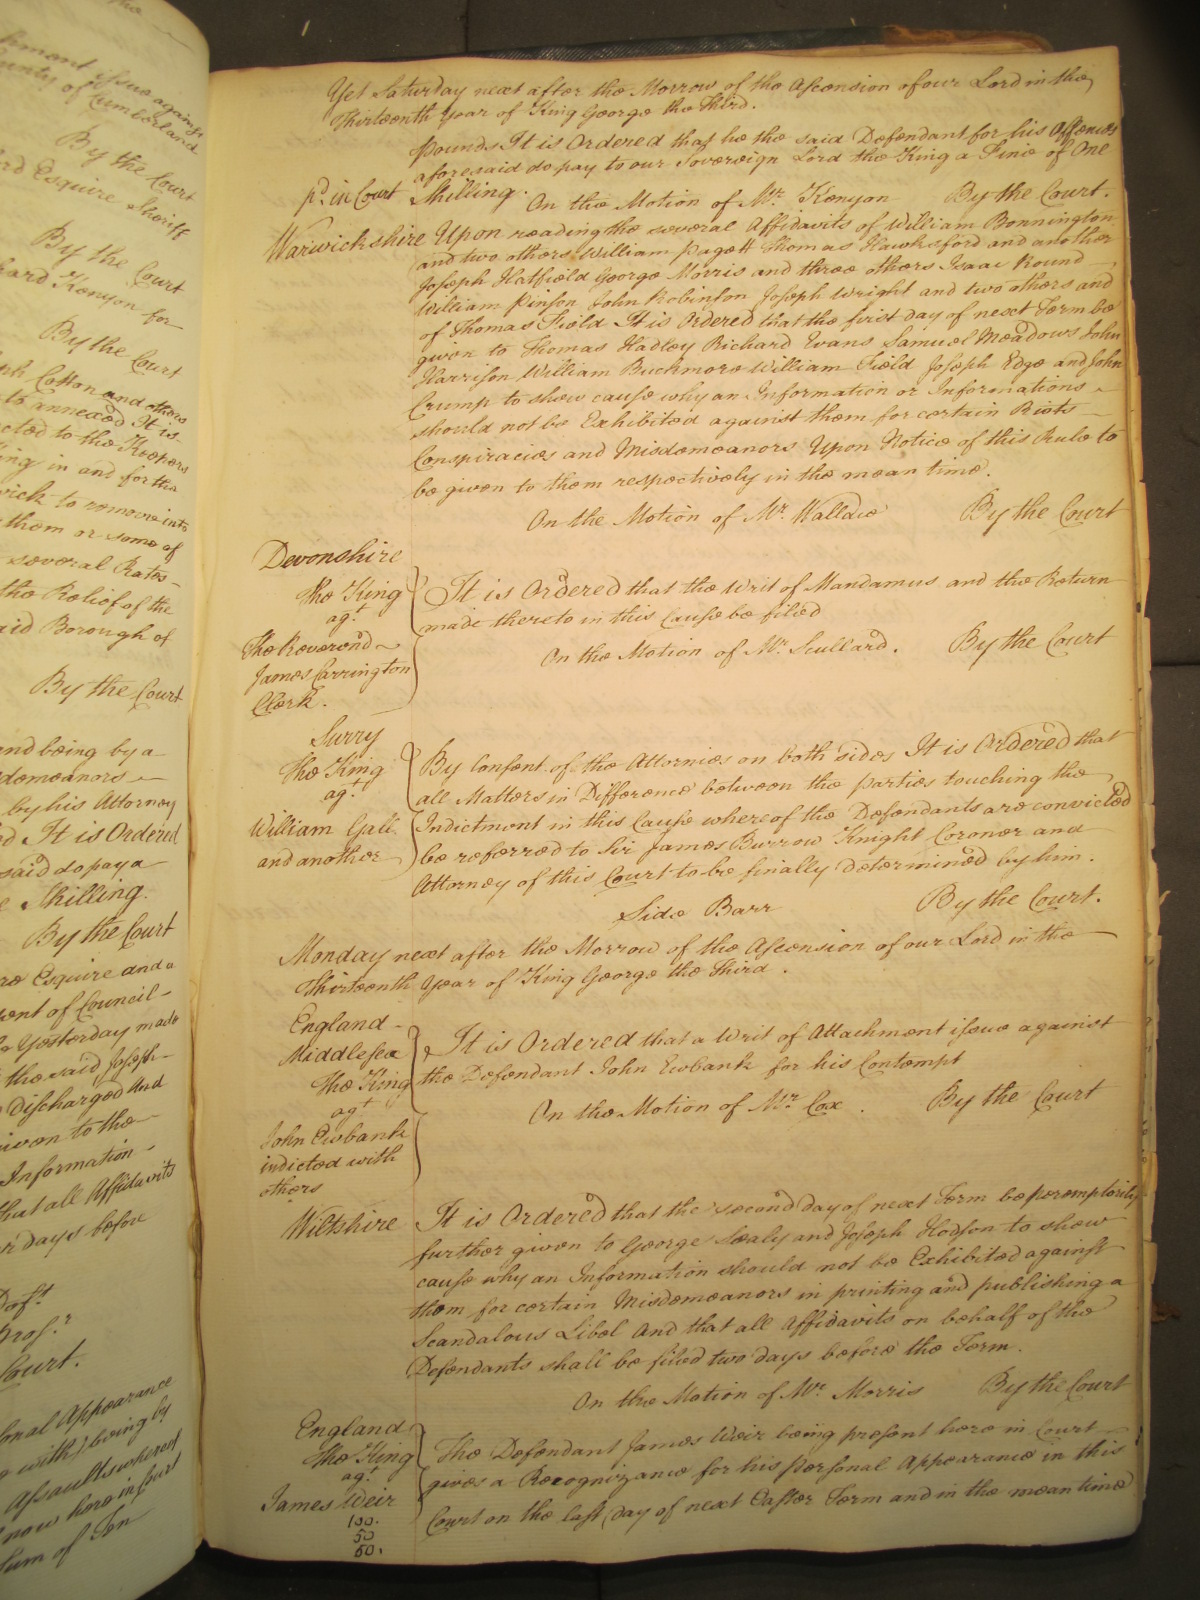 hment issue against
ounty of Cumberland
By the Court
rd Esquire Sheriff
By the Court
chard Kenyon for
By the Court
ph Cotton and others
to annexed It is
cted to the Keepers
ing in and for the
wick to remove into
them or some of
several Rates
the Relief of the
aid Borough of
By the Court
and being by a
demeanors
by his Attorney
d It is Ordered
said do pay a
Shilling.
By the Court
re Esquire and a
ent of Council
Yesterday made
the said Joseph
Discharged And
iven to the
Information
that all Affidavits
r days before
Def.t
Pros.r
Court.
onal Appearance
with) being by
Assaults whereof
now here in Court
Sum of Ten
Yet Saturday next after the Morrow of the Ascension of our Lord in the
Thirteenth Year of King George the Third.
Pounds It is Ordered that he the said Defendant for his Offences
aforesaid do pay to our Sovereign Lord the King a Fine of One
pd. in Court Shilling. On the Motion of Mr. Kenyon By the Court.
Warwickshire Upon reading the several Affidavits of William Bonnington
and two others William Pagett Thomas Hawksford and another
Joseph Hatfield George Morris and three others Isaac Round
William Pinson John Robinson Joseph Wright and two others and
of Thomas Field It is Ordered that the first day of next Term be
given to Thomas Hadley Richard Evans Samuel Meadows John
Harrison William Buckmore William Field Joseph Edge and John
Crump to shew cause why an Information or Informations
should not be Exhibited against them for certain Riots
Conspiracies and Misdemeanors Upon Notice of this Rule to
be given to them respectively in the mean time.
On the Motion of Mr. Wallace By the Court
Devonshire
The King
agt.
The Reverend
James Carrington
Clerk.
It is Ordered that the Writ of Mandamus and the Return
made thereto in this Cause be filed
On the Motion of Mr. Scullard. By the Court
Surry
The King
agt.
William Gall
and another
By Consent of the Attornies on both sides It is Ordered that
all Matters in Difference between the parties touching the
Indictment in this Cause whereof the Defendants are convicted
be referred to Sir James Burrow Knight Coroner and
Attorney of this Court to be finally determined by him.
Side Barr By the Court.
Monday next after the Morrow of the Ascension of our Lord in the
Thirteenth Year of King George the Third.
England
Middlesex
The King
agt
John Ewbank
indicted with
others
It is Ordered that a Writ of Attachment issue against
the Defendant John Ewbank for his Contempt
On the Motion of Mr. Cox. By the Court
Wiltshire It is Ordered that the second day of next Term be peremptorily
further given to George Sealy and Joseph Hodson to shew
cause why an Information should not be Exhibited against
them for certain Misdemeanors in printing and publishing a
Scandalous Libel And that all Affidavits on behalf of the
Defendants shall be filed two days before the Term.
On the Motion of Mr. Morris By the Court
England
The King
agt.
James Weir
100.
50
50.
The Defendant James Weir being present here in Court
gives a Recognizance for his personal Appearance in this
Court on the last day of next Easter Term and in the mean time